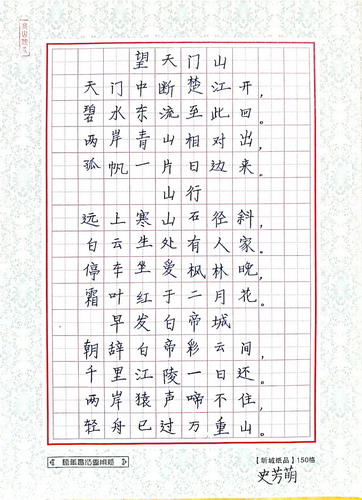 望天门山
天门中断楚江开，
碧水东流至此回。
两岸青山相对出，
孤帆一片日边来。
山行
远上寒山石径斜，
白云生处有人家。
停车坐爱枫林晚，
霜叶红于二月花。
早发白帝城
朝辞白帝彩云间，
千里江陵一日还。
两岸猿声啼不住，
轻舟已过万重山。
【昕城纸品】150格
史芳萌